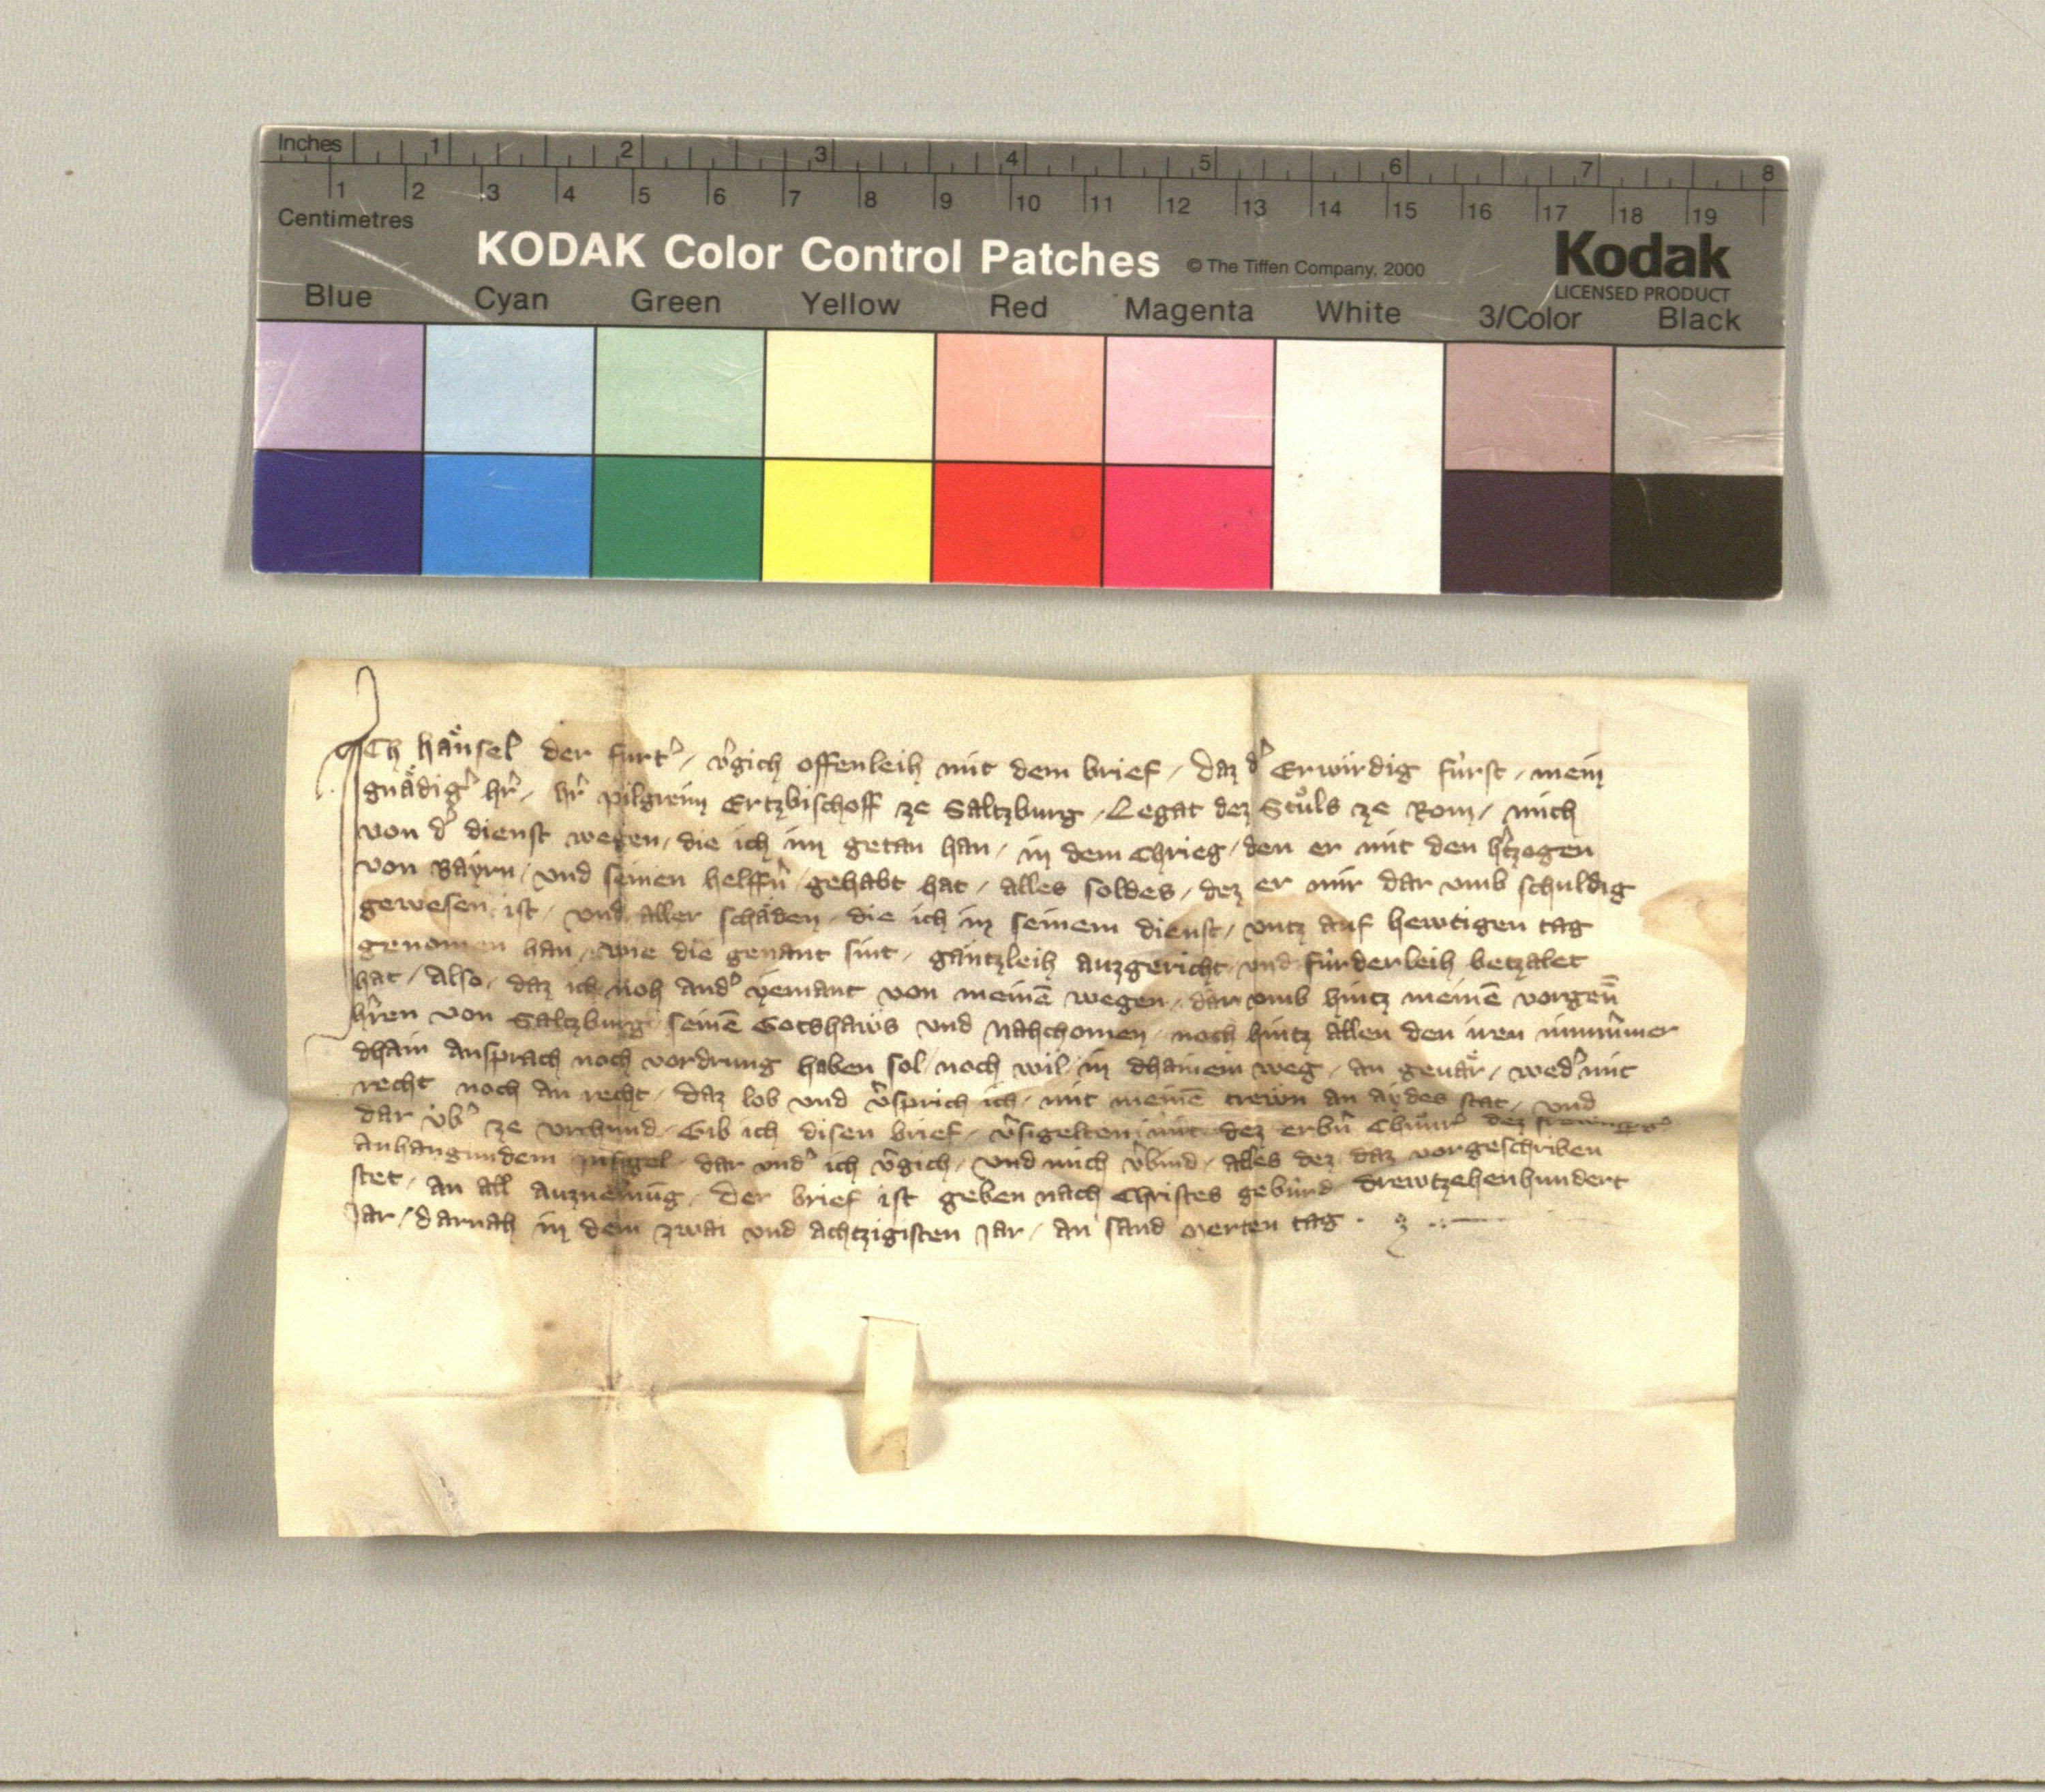 Inches 1 2 3 4 5 6 7 8
1 2 3 4 5 6 7 8 9 10 11 12 13 14 15 16 17 18 19
Centimetres
KODAK Color Control Patches © The Tiffen Company, 2000 Kodak
LICENSED PRODUCT
Blue Cyan Green Yellow Red Magenta White 3/Color Black
Ich Hänsel der furt' / v'gich offenleih mit dem brief / Daz d' Erwirdig fürst / mein
gnädig' h'r / h'r pilgreim Ertzbischoff ze Saltzburg / Legat dez Stůls ze Rom / mich
von d' dienst wegen / die ich im getan han / in dem Chrieg / den er mit den h'tzogen
von Bayrn / und seinen helff'n / gehabt hat / alles soldes / dez er mir dar vmb schuldig
gewesen ist / vnd aller schäden die ich in seinem dienst / vntz auf hewtigen tag
genomen han / wie die genant sint / gäntzleih auzgericht und fürderleih betzalet
hat / Also / daz ich noh and' yemant von meinē wegen / dar vmb hintz meinē vorgen̄
h'ren von Saltzburg seinē Gotshaws und Nahchomen noch hintz allen den iren nimmer
dhain Ansprach noch vordrung haben sol / noch wil / in dhainem weg / an geuär / wed' mit
recht noch an recht / daz lob und v'sprich ich / mit meinē trewn an aydes stat / und
dar üb' ze vrchund Gib ich disen brief / v'sigelten mit dez erb'n
anhangundem Insigel dar vnd' ich v'gich / und mich v'bind / alles dez daz vorgeschriben
stet / an all auznemüg / Der brief ist geben nach Christes gebürd drewtzehenhundert
Jar / darnah in dem zwai und achtzigisten Jar / an sand merten tag